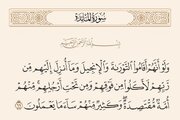 سورة المائدة
بسم الله الرحمن الرحيم
ولو أنهم أقاموا التورىة والإنجيل وما أنزل إليهم من
ربهم لأكلوا من فوقهم ومن تحت أرجلهم منهم
أمة مقتصدة وكثير منهم ساء ما يعملون